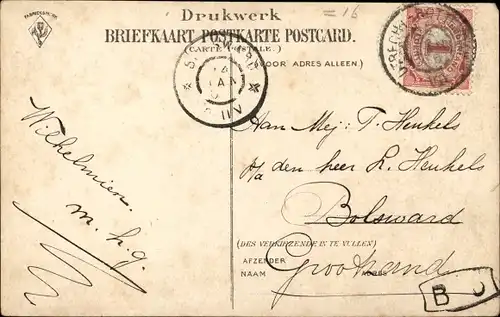 Drukwerk
= 16
BRIEFKAART POSTKARTE POSTCARD.
(CARTE POSTALE.)
(VOOR ADRES ALLEEN.)
Aan Mej: T. Henkels
p/a den heer L. Henkels
Bolsward
(DES VERKIEZENDE IN TE VULLEN)
AFZENDER
NAAM
ADRES
Groothand
B
Wilhelmien.
m. h. g.